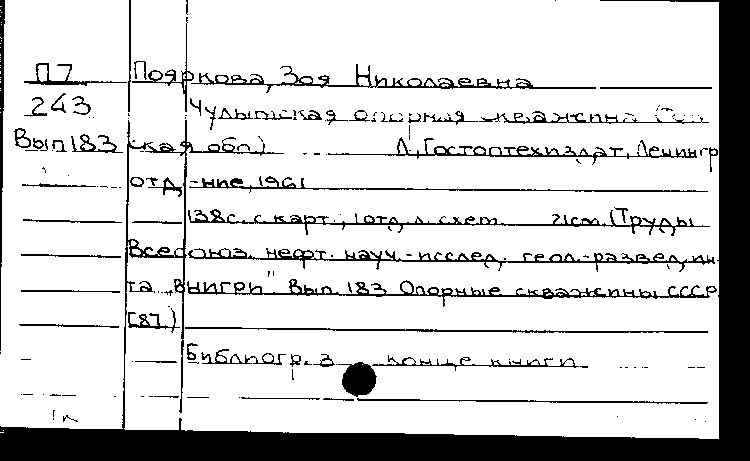 П7 Пояркова, Зоя Николаевна
243 Чулымская опорная скважина
Вып 183 ская обл.) Л, Гостоптехиздат, Ленингр
отд-ние, 1961
138с. с карт., 1 отд. л. схем. 21см. (Труды
Всесоюз. нефт. науч.-исслед. геол.-развед, ин-
та „ВНИГРИ" Вып. 183 Опорные скважины СССР.
[8].)
Библиогр. в конце книги